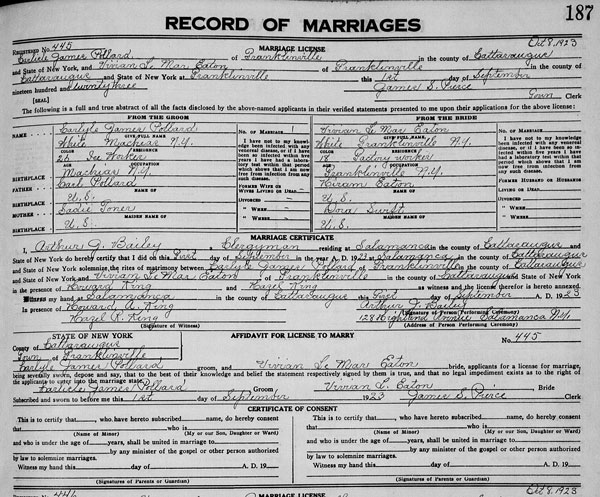 187
RECORD OF MARRIAGES
Registered No. 445 MARRIAGE LICENSE Oct 8, 1923
Carlyle James Pollard of Franklinville in the county of Cattaraugus
and State of New York, and Vivian Le Mar Eaton of Franklinville in the county of
Cattaraugus and State of New York at Franklinville this 1st day of September
nineteen hundred and twenty three James S. Pierce
[SEAL] Town Clerk
The following is a full and true abstract of all the facts disclosed by the above-named applicants in their verified statements presented to me upon their applications for the above license:
FROM THE GROOM FROM THE BRIDE
NAME Carlyle James Pollard No. of Marriage 1 Vivian Le Mar Eaton No. of Marriage
FULL NAME
White Machias N.Y. White Franklinville N.Y.
COLOR RESIDENCE
25 Factory worker
AGE OCCUPATION
BIRTHPLACE Machias N.Y. Franklinville N.Y.
FATHER Earl Pollard Hiram Eaton
NAME OF
BIRTHPLACE U.S. U.S.
MOTHER Sadie Toner Dora Swift
MAIDEN NAME OF
BIRTHPLACE U.S. U.S.
I have not to my knowledge been infected with any venereal disease, or if I have been so infected within five years I have had a laboratory test within that period which shows that I am now free from infection from any such disease.
Former Wife or Wives Living or Dead
Divorced
" When " Where
Former Husband or Husbands Living or Dead
Divorced
" When " Where
MARRIAGE CERTIFICATE
I, Arthur G. Bailey Clergyman residing at Salamanca in the county of Cattaraugus and
State of New York do hereby certify that I did on this First day of September in the year A. D. 1923 at Salamanca in the county of Cattaraugus
and State of New York solemnize the rites of matrimony between Carlyle James Pollard of Franklinville in the county of Cattaraugus
and State of New York and Vivian Le Mar Eaton of Franklinville in the county of Cattaraugus and State of New York
in the presence of Howard King and Hazel King as witness and the license therefor is hereto annexed.
Witness my hand at Salamanca in the county of Cattaraugus this First day of September A. D. 1923
In presence of Howard A. King Arthur G. Bailey
(Signature of Person Performing Ceremony)
Hazel R. King 128 Highland Avenue Salamanca N.Y.
(Signature of Witness) (Address of Person Performing Ceremony)
STATE OF NEW YORK AFFIDAVIT FOR LICENSE TO MARRY No. 445
County of Cattaraugus
Town of Franklinville
Carlyle James Pollard groom, and Vivian Le Mar Eaton bride, applicants for a license for marriage,
being severally sworn, depose and say, that to the best of their knowledge and belief the statement respectively signed by them is true, and that no legal impediment exists as to the right of
the applicants to enter into the marriage state.
Carlyle James Pollard Groom Vivian L. Eaton, Bride
Subscribed and sworn to before me this 1st day of September 1923 James S. Pierce Clerk
CERTIFICATE OF CONSENT
This is to certify that , who have hereto subscribed name, do hereby consent This is to certify that , who have hereto subscribed name, do hereby consent
that who is that who is
(Name of Minor) (My or Our Son, Daughter or Ward) (Name of Minor) (My or Our Son, Daughter or Ward)
and who is under the age of years, shall be united in marriage to and who is under the age of years, shall be united in marriage to
by any minister of the gospel or other person authorized by any minister of the gospel or other person authorized
by law to solemnize marriages. by law to solemnize marriages.
Witness my hand this day of A. D. 19 Witness my hand this day of A. D. 19
(Signatures of Parents or Guardian) (Signatures of Parents or Guardian)
446 Oct 8, 1923